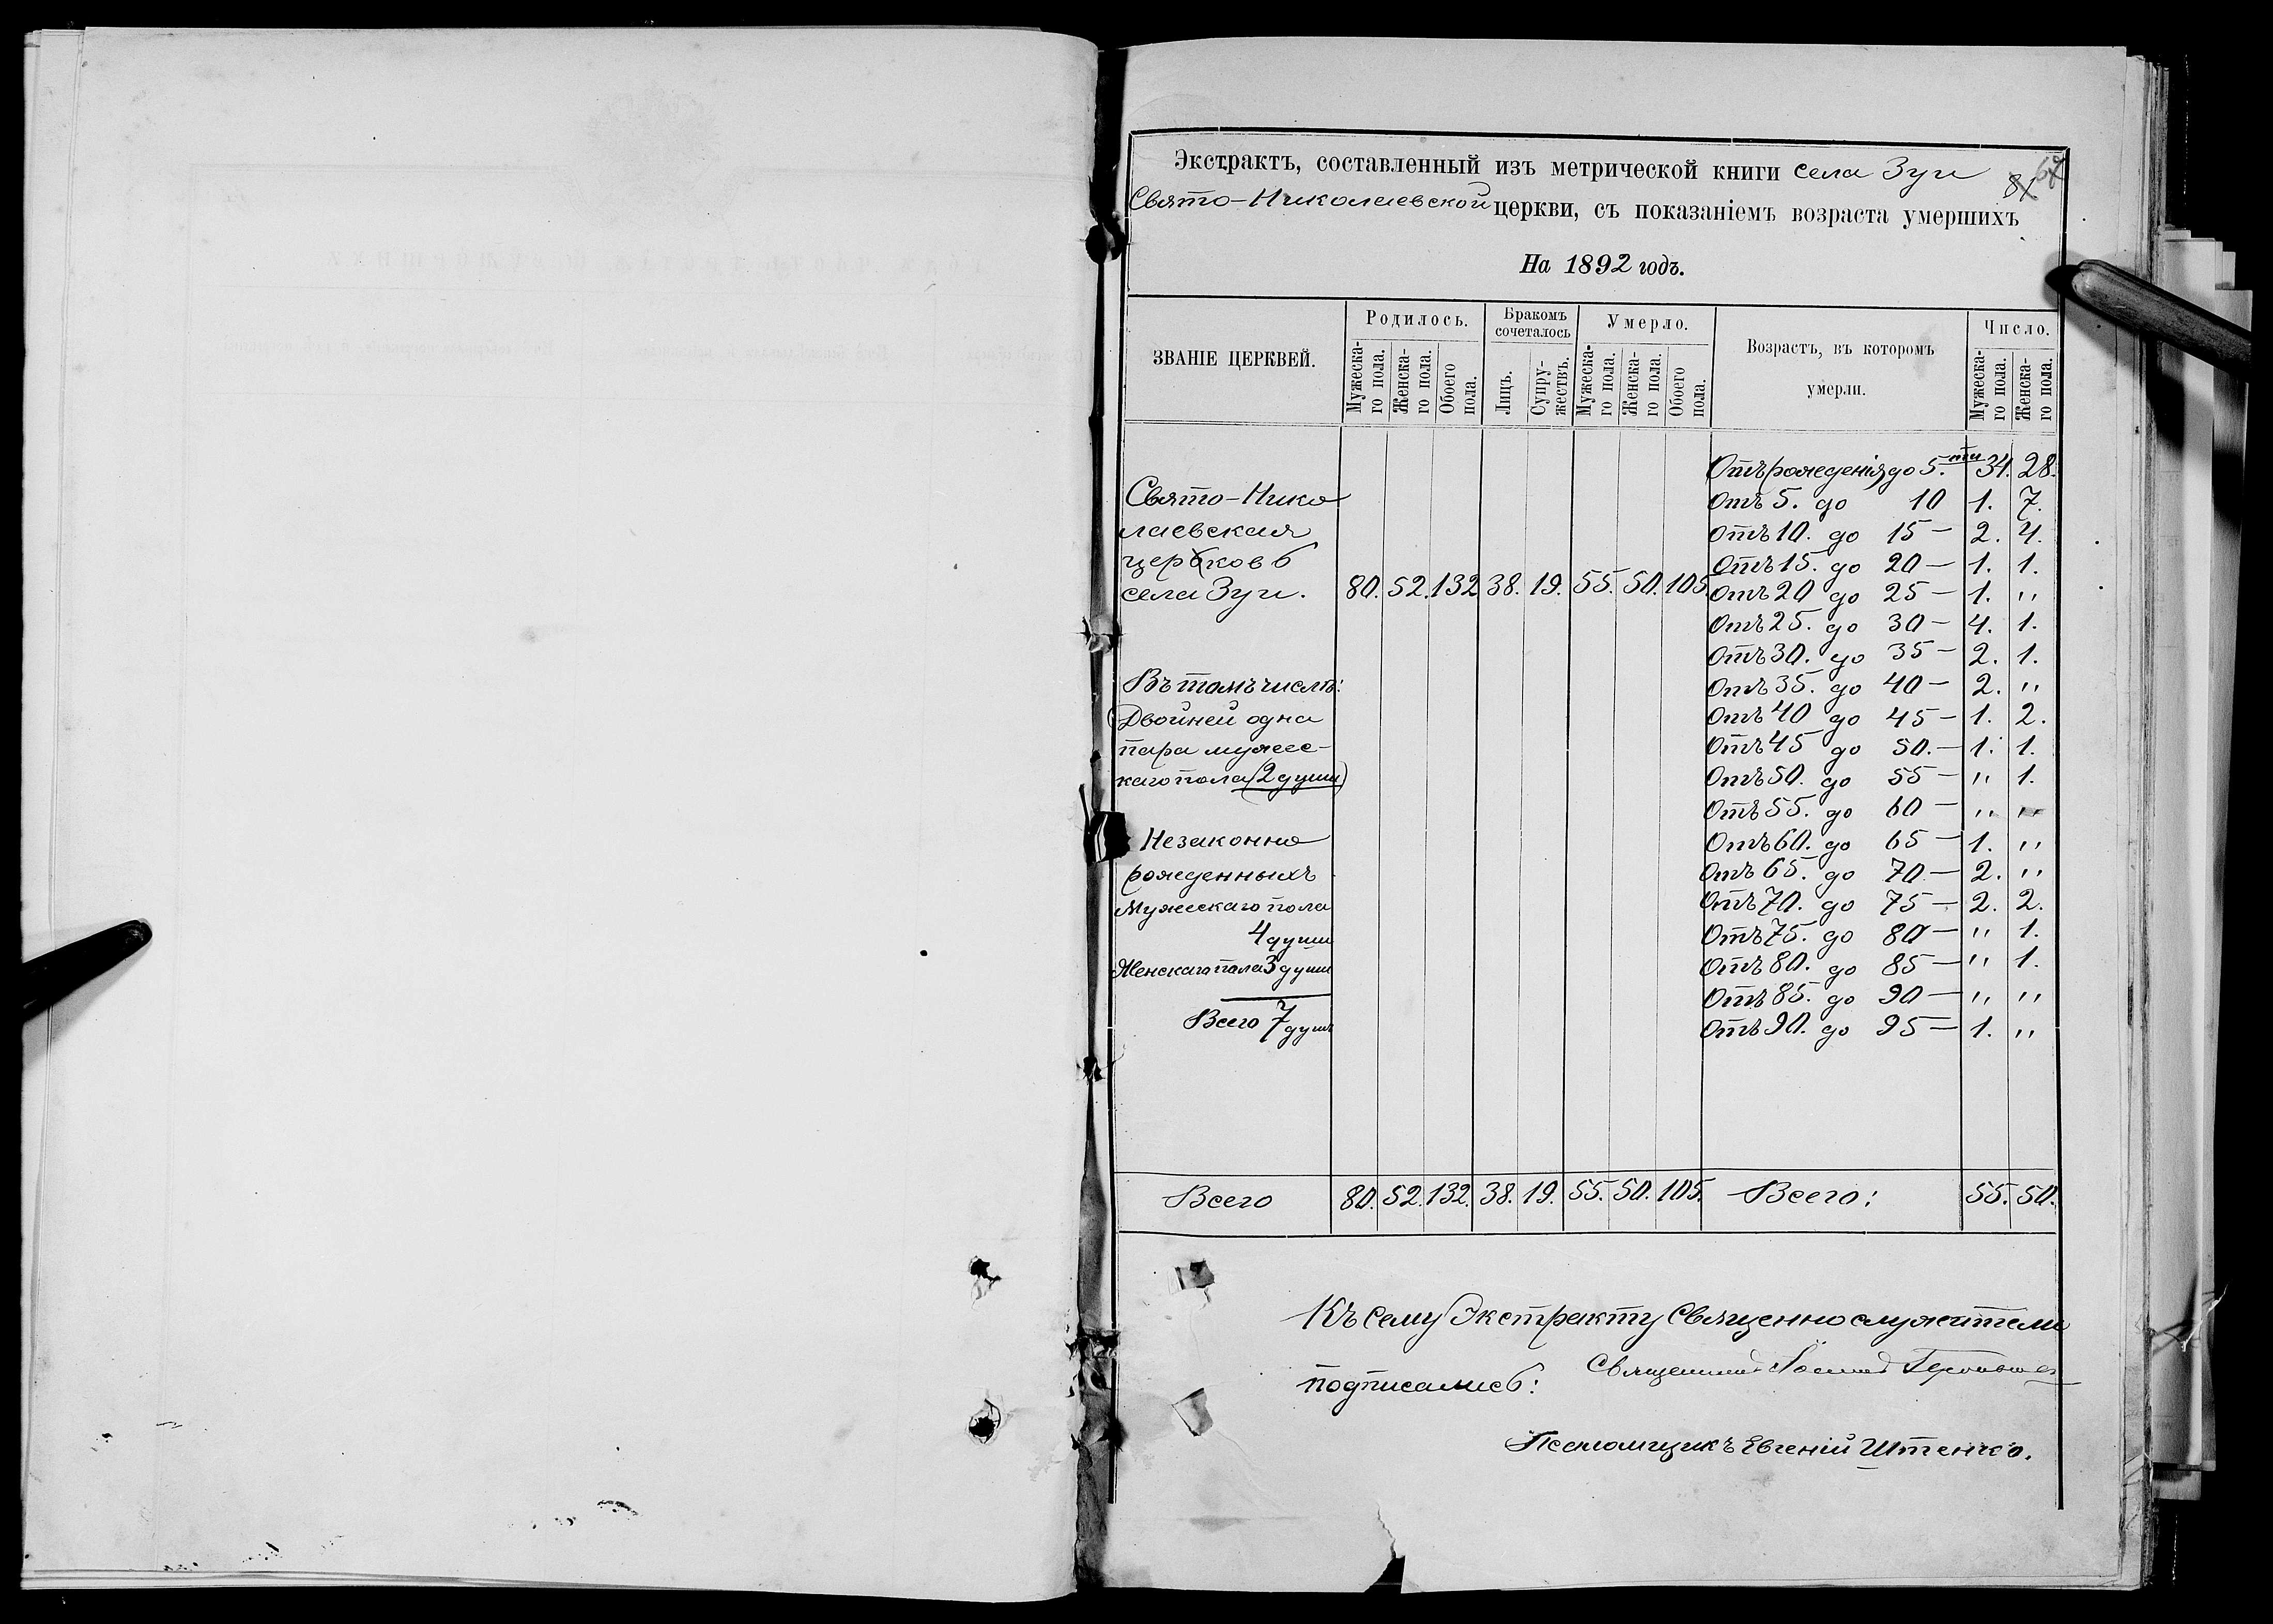 Экстрактъ, составленный изъ метрической книги села Зуи
Свято-Николаевской церкви, съ показаніемъ возраста умершихъ
На 1892 годъ.
ЗВАНІЕ ЦЕРКВЕЙ. Родилось. Бракомъ сочеталось Умерло. Возрастъ, въ которомъ умерли. Число.
Мужеска-го пола. Женска-го пола. Обоего пола. Лицъ. Супру-жествъ. Мужеска-го пола. Женска-го пола. Обоего пола. Мужеска-го пола. Женска-го пола.
Свято-Нико
лаевская
церковь
села Зуи. 80. 52. 132 38. 19. 55. 50. 105.
Въ томъ числѣ:
Двойней одна
пара мужес-
каго пола (2 души)
Незаконно
рожденныхъ
Мужескаго пола
4 души
Женскаго пола 3 души
Всего 7 душъ
Отъ рожденія до 5.ти 34. 28.
Отъ 5. до 10 1. 7.
Отъ 10. до 15 — 2. 4.
Отъ 15. до 20 — 1. 1.
Отъ 20 до 25 — 1. "
Отъ 25. до 30 — 4. 1.
Отъ 30. до 35 — 2. 1.
Отъ 35. до 40 — 2. "
Отъ 40 до 45 — 1. 2.
Отъ 45 до 50. — 1. 1.
Отъ 50. до 55 — " 1.
Отъ 55. до 60 — " "
Отъ 60. до 65 — 1. "
Отъ 65. до 70 — 2. "
Отъ 70. до 75 — 2. 2.
Отъ 75. до 80 — " 1.
Отъ 80. до 85 — " 1.
Отъ 85. до 90 — " "
Отъ 90. до 95 — 1. "
Всего 80. 52. 132. 38. 19. 55. 50. 105. Всего: 55. 50.
Къ сему Экстракту Священнослужители
подписались: Священникъ
Псаломщикъ Евгеній Штенко.